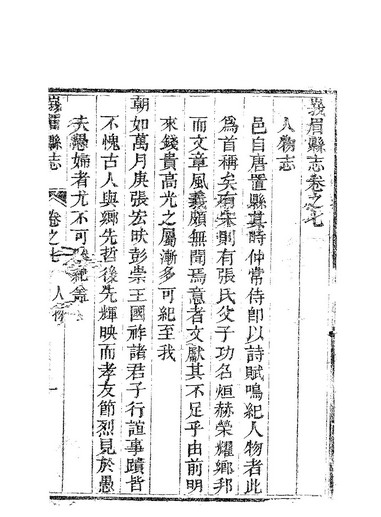 峩眉縣志卷之七
人物志
邑自唐置縣其時仲常侍卽以詩賦鳴紀人物者此
為首稱矣有宋則有張氏父子功名烜赫榮耀鄉邦
而文章風義頗無聞焉意者文獻其不足乎由前明
來錢貴高光之屬漸多可紀至我
朝如萬月庚張宏昳彭崇王國祚諸君子行誼事蹟皆
不愧古人與鄉先哲後先輝映而孝友節烈見於愚
夫愚婦者尤不可
峩眉縣志
卷之七
人物
一